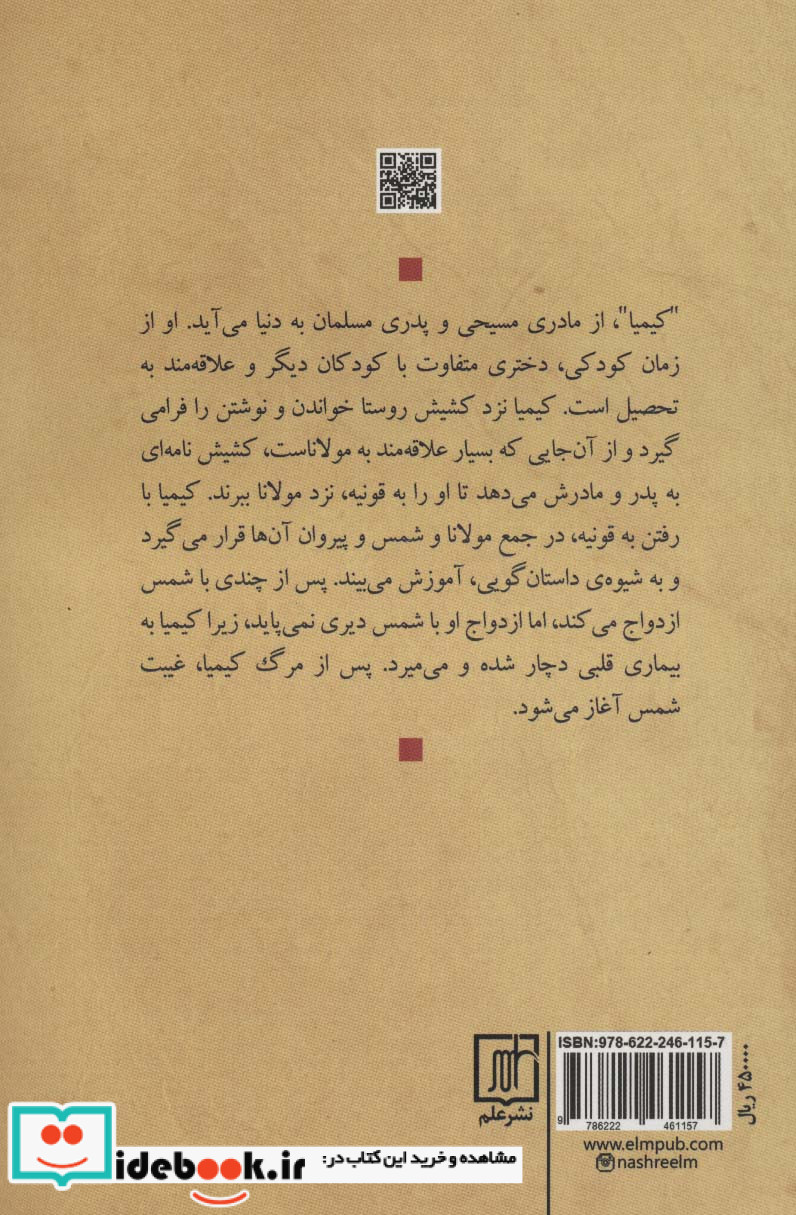 "کیمیا"، از مادری مسیحی و پدری مسلمان به دنیا می‌آید. او از
زمان کودکی، دختری متفاوت با کودکان دیگر و علاقه‌مند به
تحصیل است. کیمیا نزد کشیش روستا خواندن و نوشتن را فرامی
گیرد و از آن‌جایی که بسیار علاقه‌مند به مولاناست، کشیش نامه‌ای
به پدر و مادرش می‌دهد تا او را به قونیه، نزد مولانا ببرند. کیمیا با
رفتن به قونیه، در جمع مولانا و شمس و پیروان آن‌ها قرار می‌گیرد
و به شیوه‌ی داستان‌گویی، آموزش می‌بیند. پس از چندی با شمس
ازدواج می‌کند، اما ازدواج او با شمس دیری نمی‌پاید، زیرا کیمیا به
بیماری قلبی دچار شده و می‌میرد. پس از مرگ کیمیا، غیبت
شمس آغاز می‌شود.
علم
نشرعلم
ISBN:978-622-246-115-7
9 786222 461157
۴۵۰۰۰۰ ریال
www.elmpub.com
nashreelm
مشاهده و خرید این کتاب در:
idebook.ir